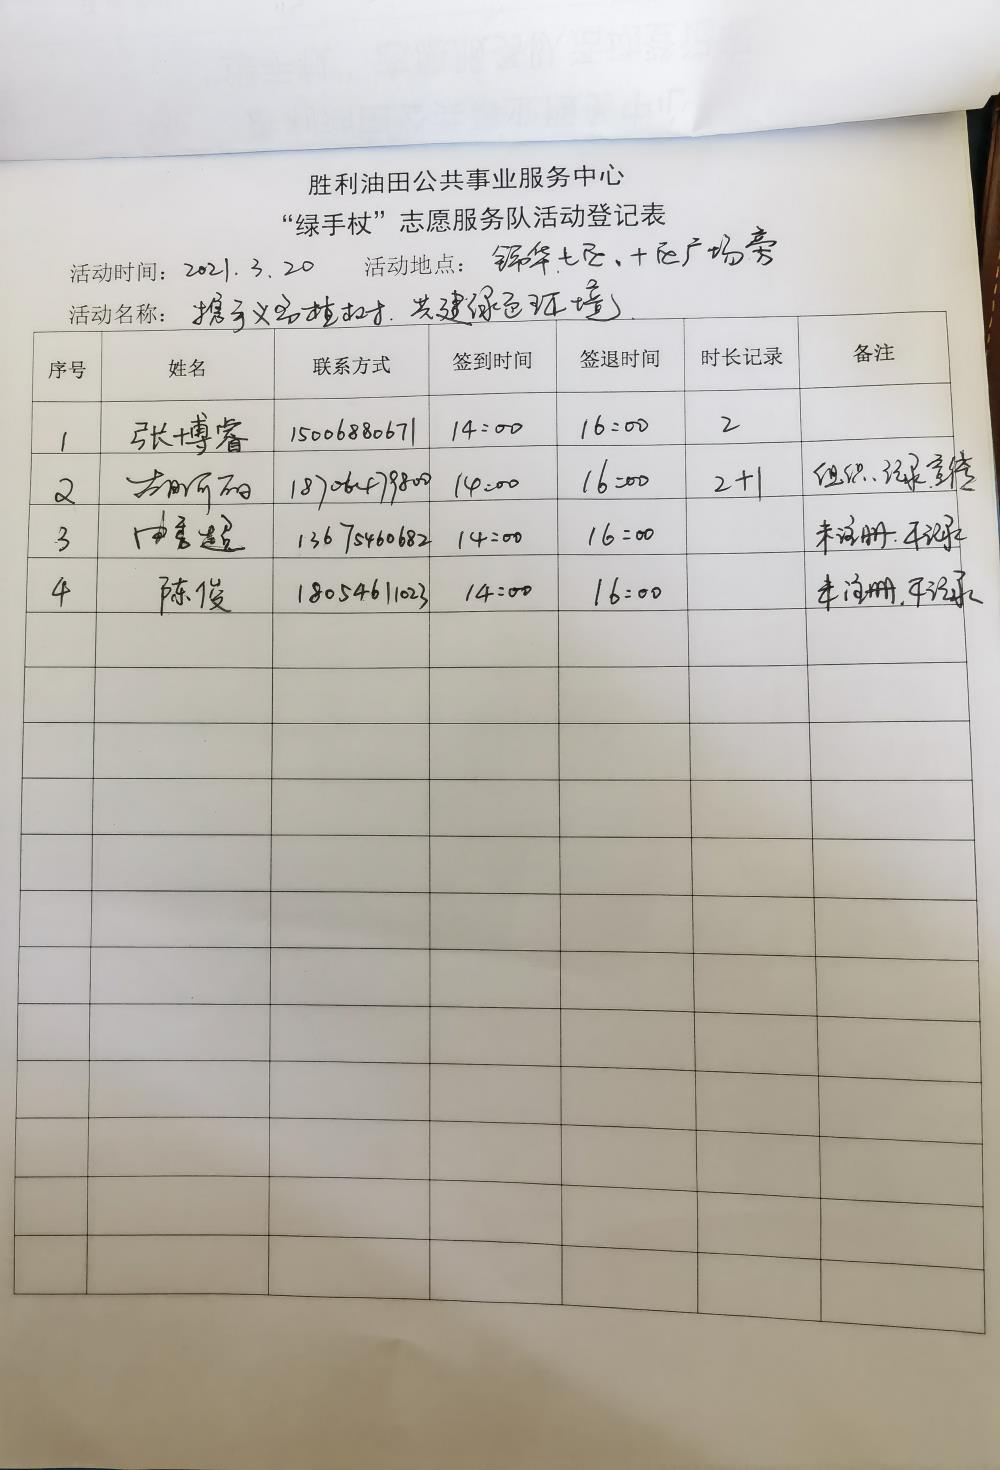 胜利油田公共事业服务中心
“绿手杖”志愿服务队活动登记表
活动时间：2021.3.20 活动地点：锦华七区、十区广场旁
活动名称：携手义务植树.共建绿色环境
序号 姓名 联系方式 签到时间 签退时间 时长记录 备注
1 张博睿 15006880671 14:00 16:00 2
2 18706479800 14:00 16:00 2+1 组织、记录宣传
3 13675460682 14:00 16:00 未注册.不记录
4 陈俊 18054611023 14:00 16:00 未注册.不记录